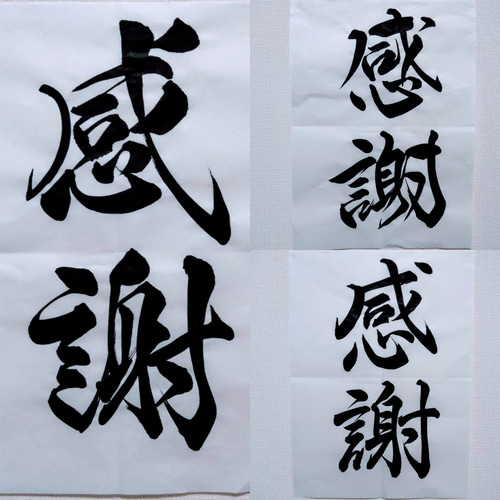 感
謝
感
謝
感
謝